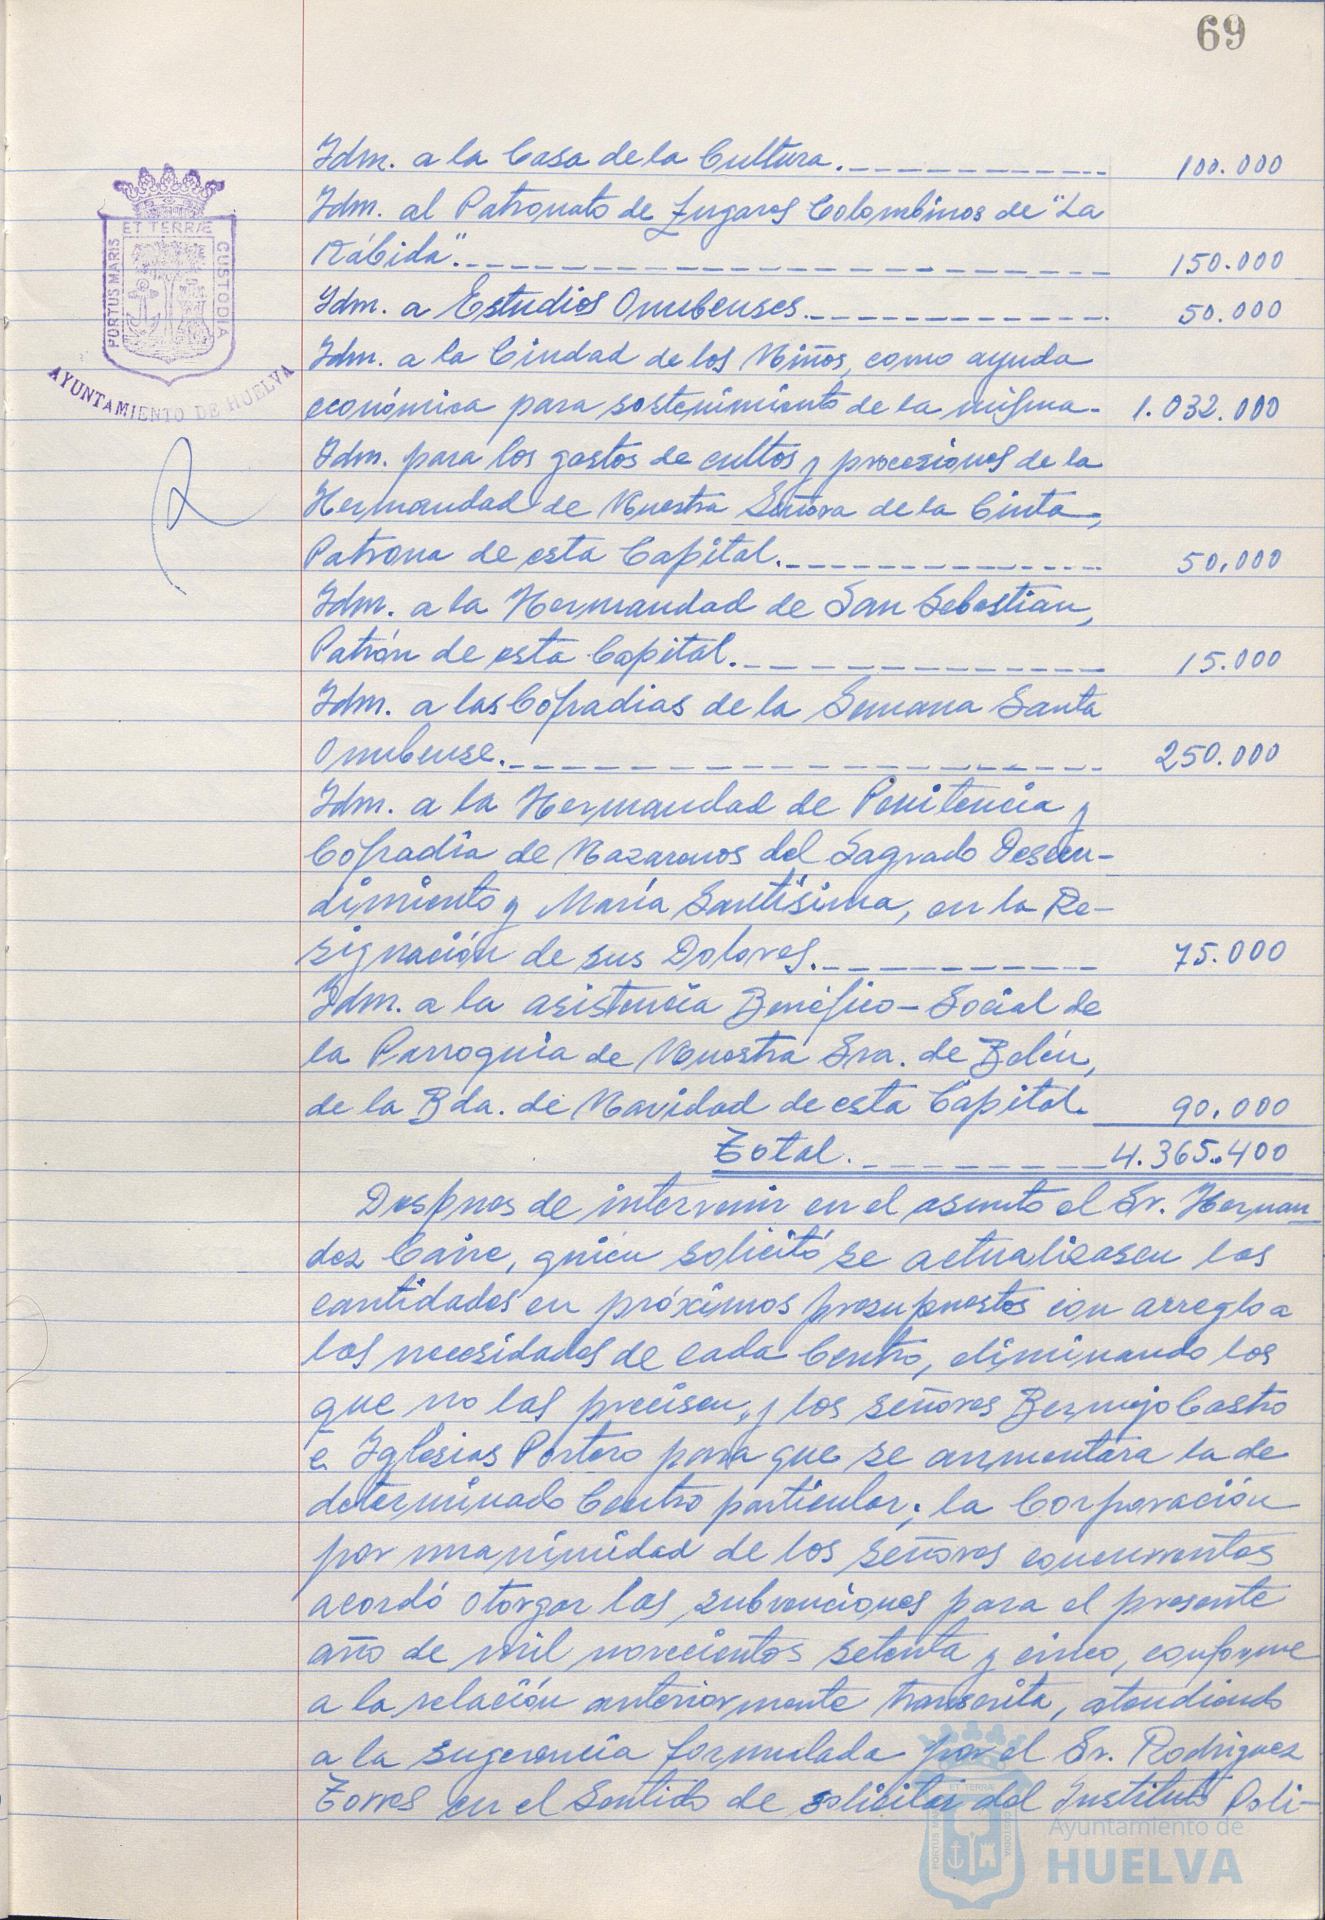 69
Idm. a la Casa de la Cultura. 100.000
Idm. al Patronato de Lugares Colombinos de "La
Rábida". 150.000
Idm. a Estudios Onubenses. 50.000
Idm. a la Ciudad de los Niños, como ayuda
económica para sostenimiento de la misma- 1.032.000
Idm. para los gastos de cultos y procesiones de la
Hermandad de Nuestra Señora de la Cinta,
Patrona de esta Capital. 50.000
Idm. a la Hermandad de San Sebastian,
Patrón de esta Capital. 15.000
Idm. a las Cofradias de la Semana Santa
Onubense. 250.000
Idm. a la Hermandad de Penitencia y
Cofradía de Nazarenos del Sagrado Descen-
dimiento y María Santísima, en la Re-
signación de sus Dolores. 75.000
Idm. a la asistencia Benéfico-Social de
la Parroquia de Nuestra Sra. de Belén,
de la Bda. de Navidad de esta Capital. 90.000
Total. 4.365.400
Despues de intervenir en el asunto el Sr. Hernan-
dez Caire, quien solicitó se actualizasen las
cantidades en próximos presupuestos con arreglo a
las necesidades de cada Centro, eliminando los
que no las precisen, y los señores Bermejo Castro
e Iglesias Portero para que se aumentara la de
determinado Centro particular; la Corporación
por unanimidad de los señores concurrentes
acordó otorgar las subvenciones para el presente
año de mil novecientos setenta y cinco, conforme
a la relación anteriormente transcrita, atendiendo
a la sugerencia formulada por el Sr. Rodriguez
Torres en el Sentido de solicitar del Instituto Poli-
PORTUS MARIS
ET TERRÆ
CUSTODIA
AYUNTAMIENTO DE HUELVA
PORTUS MARIS
ET TERRÆ
CUSTODIA
Ayuntamiento de
HUELVA